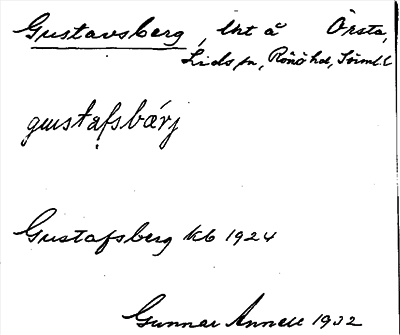 Gustavsberg, lht å Örsta,
Lids sn, Rönö hd, Söml. l.
gustafsbärj
Gustafsberg kb 1924
Gunnar Annell 1932